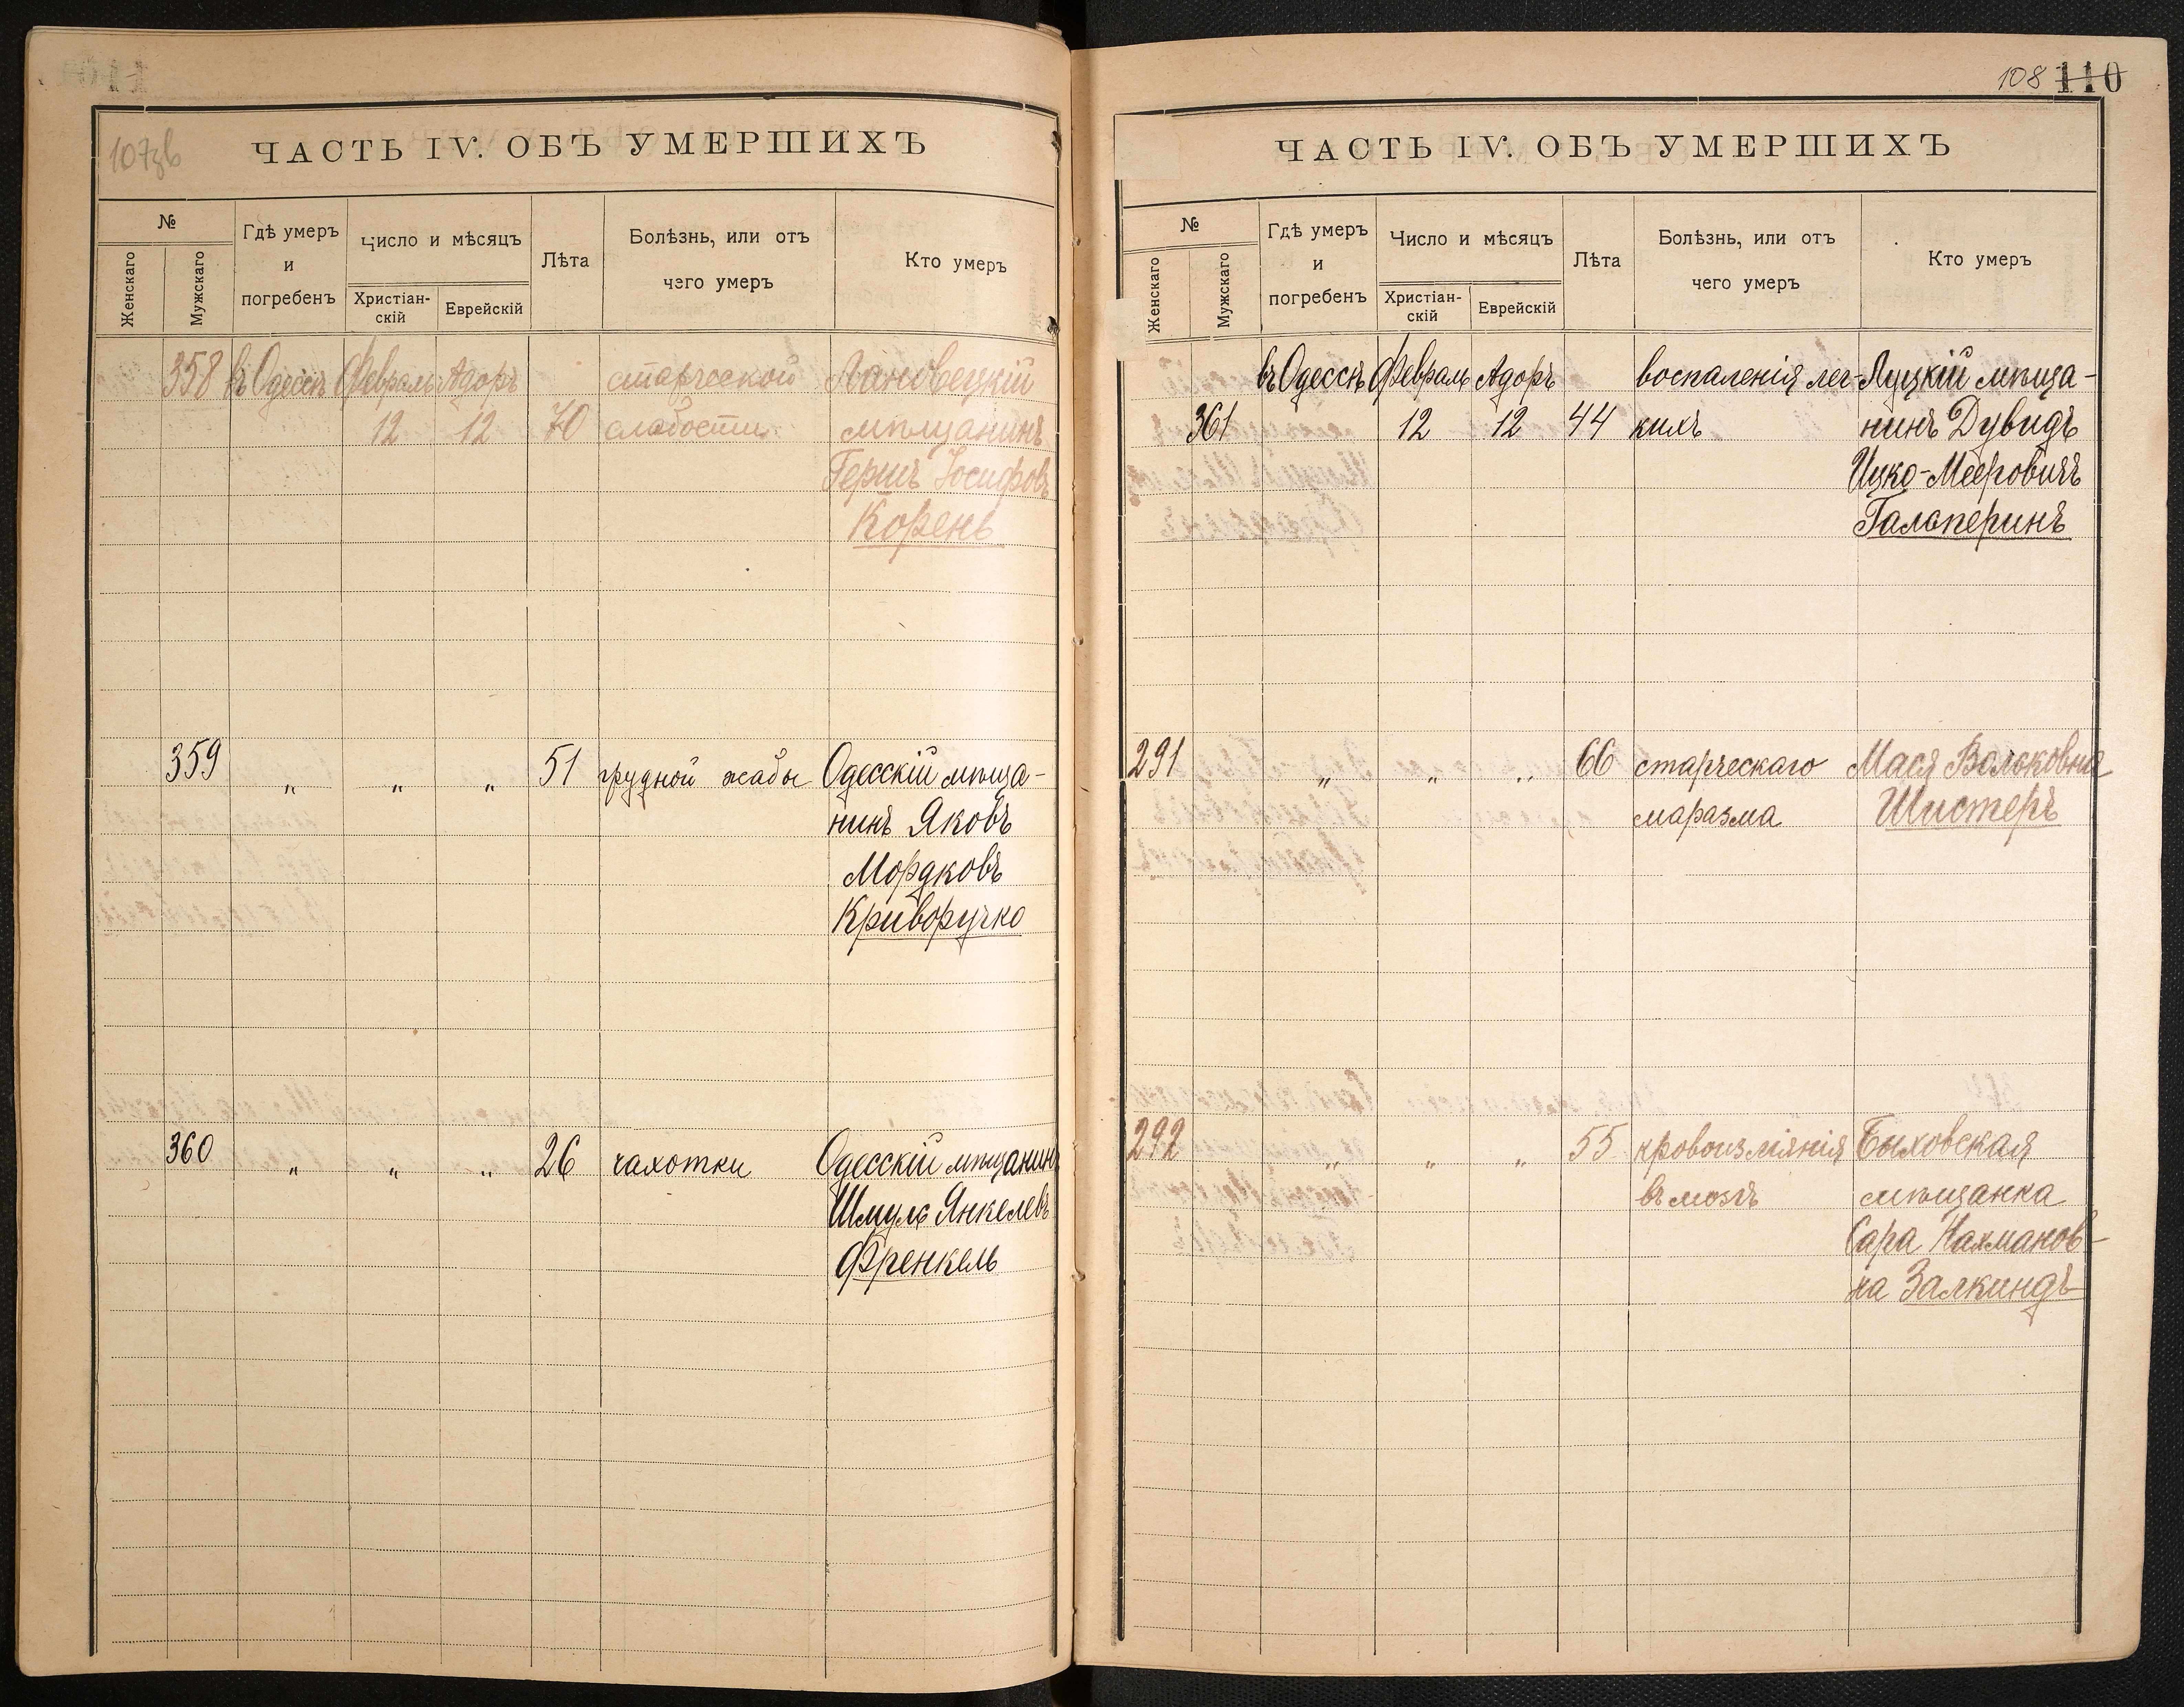 107зв
ЧАСТЬ IV. ОБЪ УМЕРШИХЪ
№
Женскаго
Мужскаго
Гдѣ умеръ
и
погребенъ
Число и мѣсяцъ
Христіан-
скій
Еврейскій
Лѣта
Болѣзнь, или отъ
чего умеръ
Кто умеръ
358 въ Одессѣ Февраль Адоръ старческой Лановецкій
12 12 70 слабости мѣщанинъ
Гершъ Іосифовъ
Корень
359 „ „ „ 51 грудной жабы Одесскій мѣща-
нинъ Яковъ
Мордковъ
Криворучко
360 „ „ „ 26 чахотки Одесскій мѣщанинъ
Шмуль Янкелевъ
Френкель
108 110
ЧАСТЬ IV. ОБЪ УМЕРШИХЪ
№
Женскаго
Мужскаго
Гдѣ умеръ
и
погребенъ
Число и мѣсяцъ
Христіан-
скій
Еврейскій
Лѣта
Болѣзнь, или отъ
чего умеръ
Кто умеръ
въ Одессѣ Февраль Адоръ воспаленія лег- Луцкій мѣща-
361 12 12 44 кихъ нинъ Дувидъ
Ицко-Мееровичъ
Гальперинъ
291 „ „ „ 66 старческаго Мася Вольковна
маразма Шистеръ
292 „ „ „ 55 кровоизліянія Быховская
въ мозгъ мѣщанка
Сара Нахманов-
на Залкиндъ